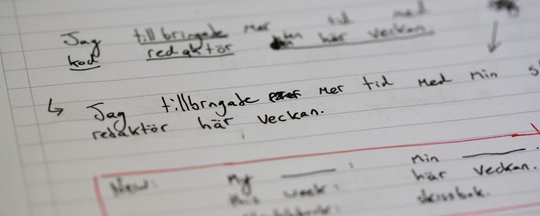 Jag tillbringade mer tid med
kod redaktör här veckan.
↳ Jag tillbrngade mer tid med min
redaktör här veckan.
New: My : min
this week: här veckan.
skissbok.